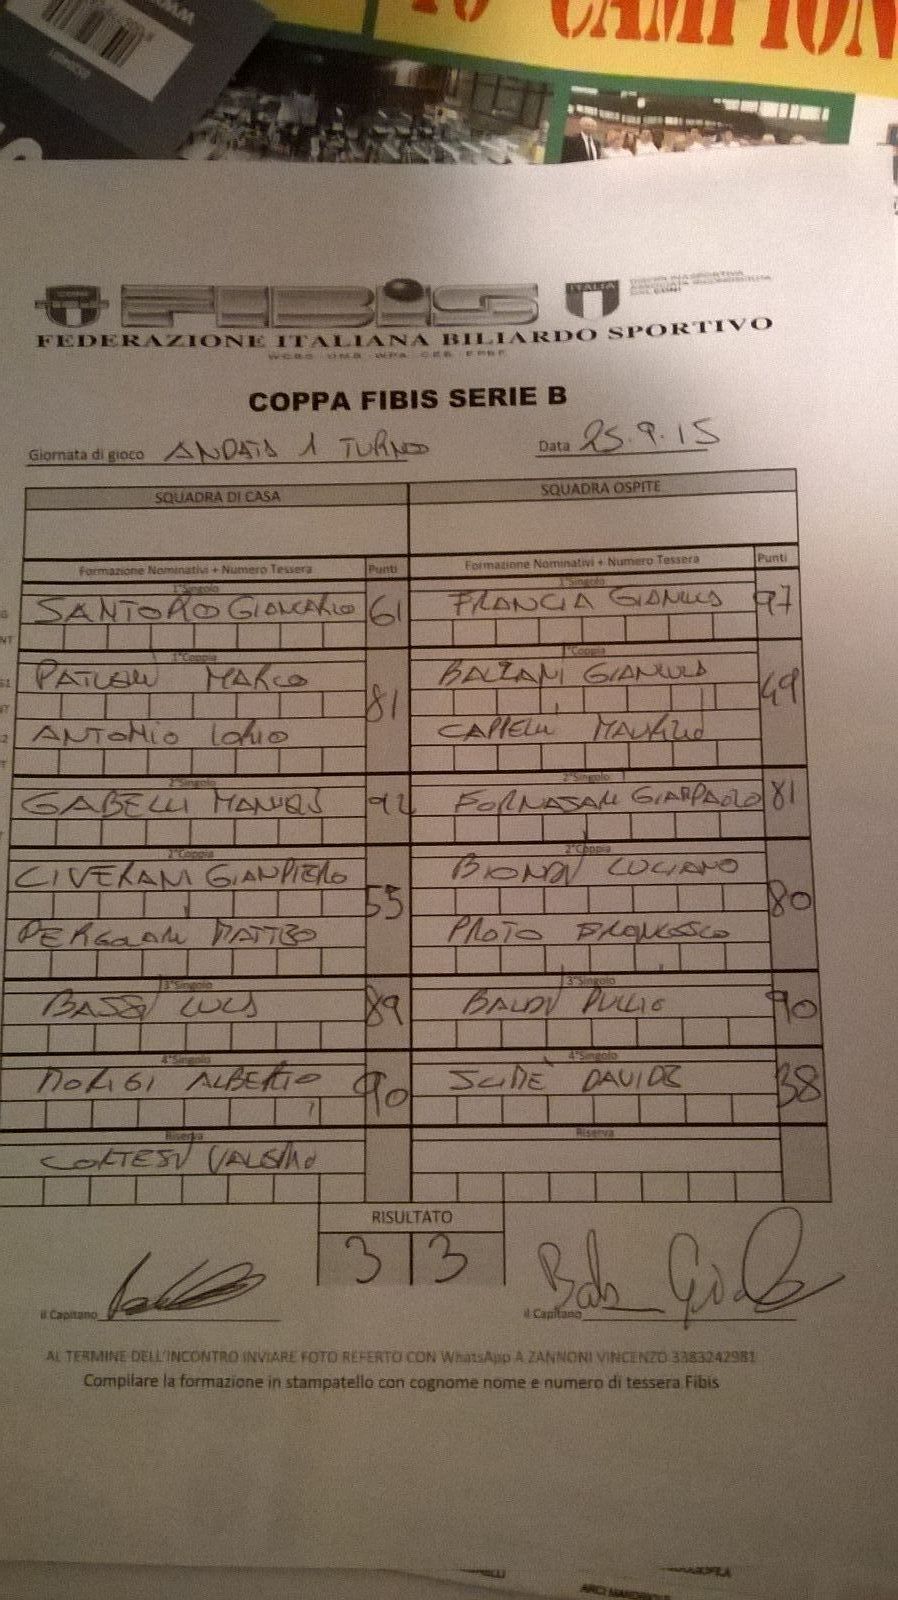 10 CAMPION
FIBIS
ITALIA
FEDERAZIONE ITALIANA BILIARDO SPORTIVO
COPPA FIBIS SERIE B
Giornata di gioco ANDATA 1 TURNO Data 25.9.15
SQUADRA DI CASA SQUADRA OSPITE
Formazione Nominativi + Numero Tessera Punti Formazione Nominativi + Numero Tessera Punti
1°Singolo 1°Singolo
SANTORO GIANCARLO 61 FRANCIA GIANLUCA 97
1°Coppia 1°Coppia
MARCO BALZANI GIANLUCA
81 49
ANTONIO IORIO CAPPELLI MAURIZIO
2°Singolo 2°Singolo
GABELLI MANUEL 92 FORNASARI GIAMPAOLO 81
2°Coppia 2°Coppia
CIVERANI GIANPIERO BIONDI LUCIANO
55 80
PERGOLARI MATTEO PROTO FRANCESCO
3°Singolo 3°Singolo
BASSI LUCA 89 BALDI 90
4°Singolo 4°Singolo
MORIGI ALBERTO 90 DAVIDE 38
Riserva Riserva
CORTESI VALERIO
RISULTATO
3 3
il Capitano il Capitano
AL TERMINE DELL'INCONTRO INVIARE FOTO REFERTO CON WhatsApp A ZANNONI VINCENZO 3383242981
Compilare la formazione in stampatello con cognome nome e numero di tessera Fibis